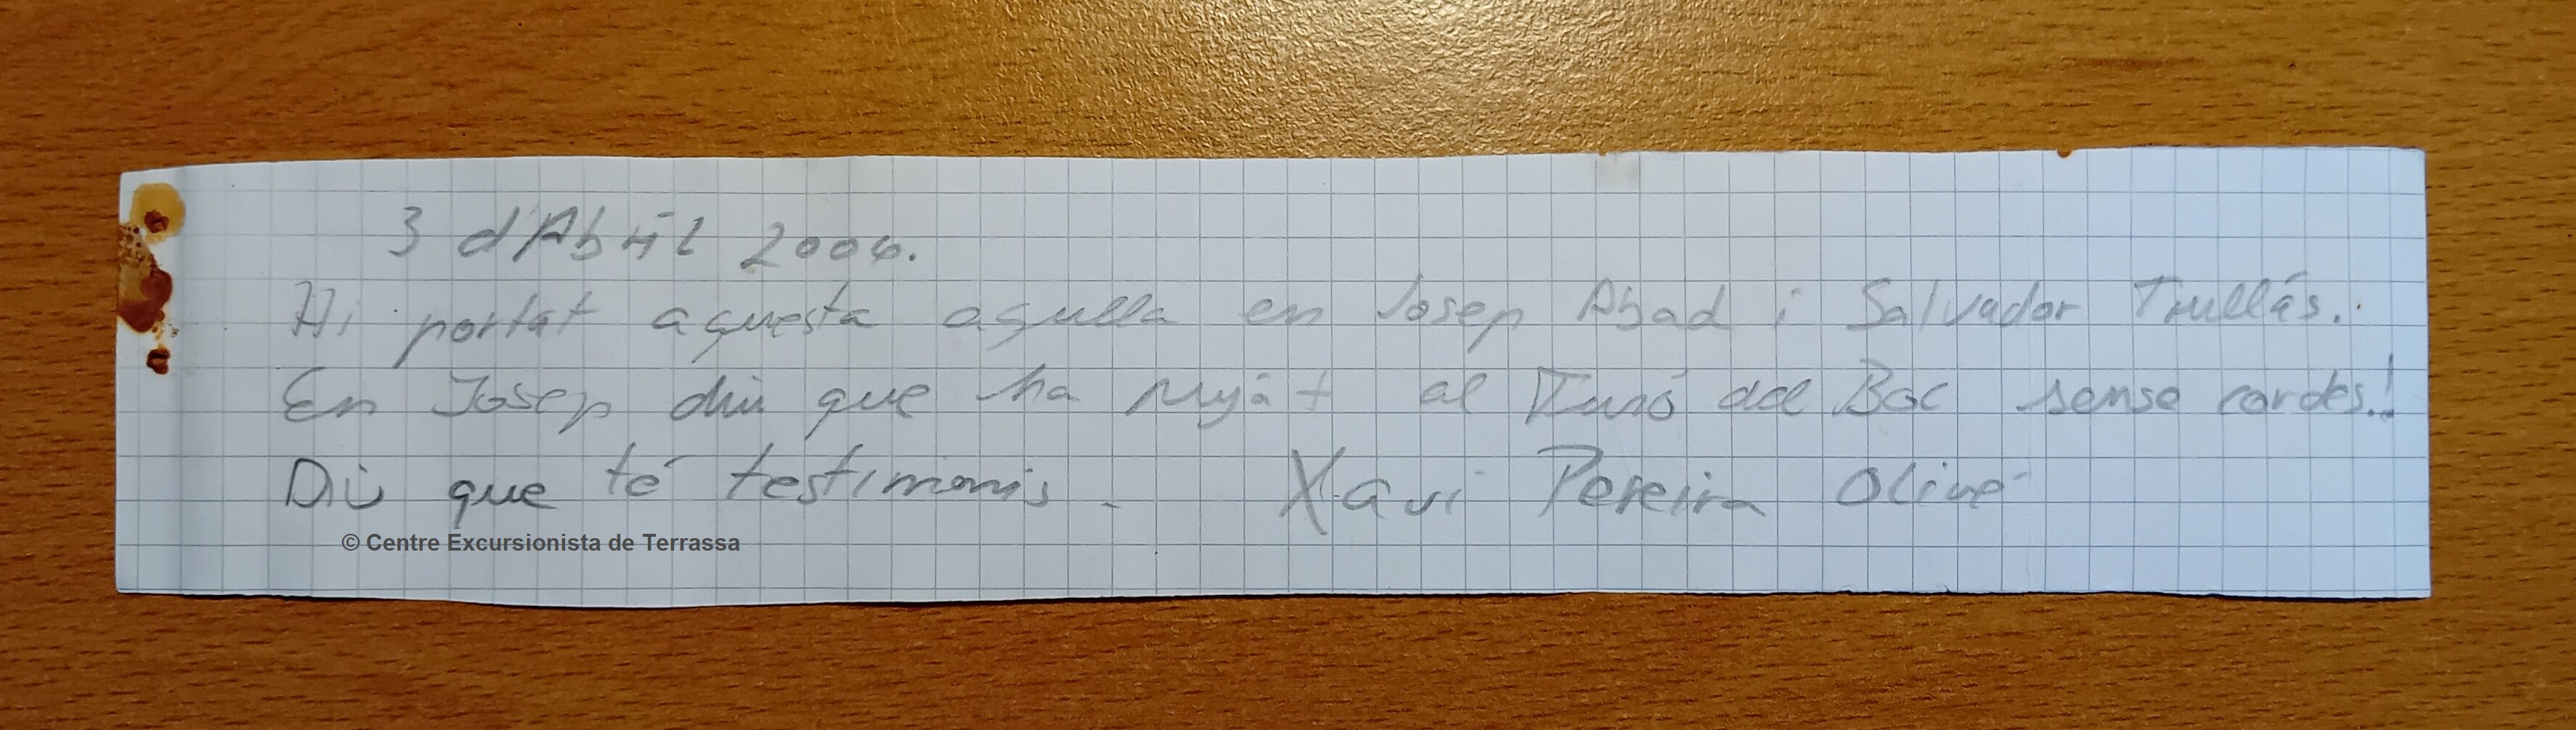 3 d'Abril 2006.
Hi portat aquesta agulla en Josep Abad i Salvador Trullás.
En Josep diu que ha pujat al Turó del Boc sense cordes!
Diu que té testimonis. Xavi Pereira Olivé
© Centre Excursionista de Terrassa